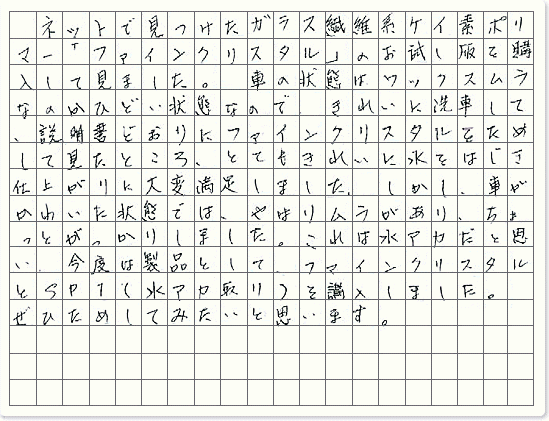 ネットで見つけたガラス繊維系ケイ素ポリ
マー「ファインクリスタル」のお試し版を購
入して見ました。 車の状態はワックスムラ
なのかひどい状態なので きれいに洗車して
、説明書どおりにファインクリスタルをため
して見たところ、とてもきれいに水をはじき
仕上がりに大変満足しました。しかし、車が
かわいた状態では、やはりムラがあり、ちょ
っとがっかりしました。これは水アカだと思
い、今度は製品として ファインクリスタル
とSP1(水アカ取り)を購入しました。
ぜひためしてみたいと思います。